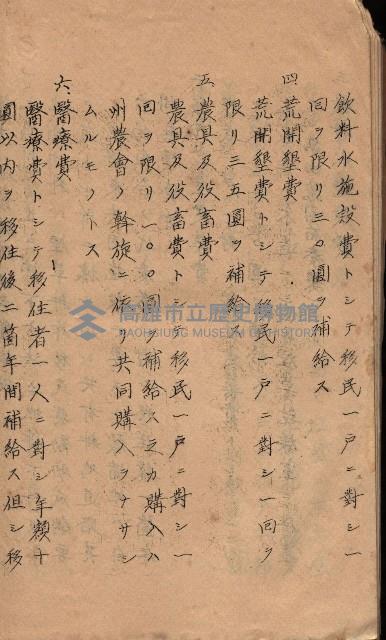 飲料水施設費トシテ移民一戸ニ對シ一
回ヲ限リ三〇圓ヲ補給ス
四、荒開墾費
荒開墾費トシテ移民一戸ニ對シ一回ヲ
限リ三五圓ヲ補給ス
五、農具及役畜費
農具及役畜費トシテ移民一戸ニ對シ一
回ヲ限リ一〇〇圓ヲ補給ス之カ購入ハ
州農會ノ斡旋ニ依リ共同購入ヲナサシ
ムルモノトス
六、醫療費
醫療費トシテ移住者一人ニ對シ年額十
圓以内ヲ移住後二箇年間補給ス但シ移
高雄市立歷史博物館
KAOHSIUNG MUSEUM OF HISTORY